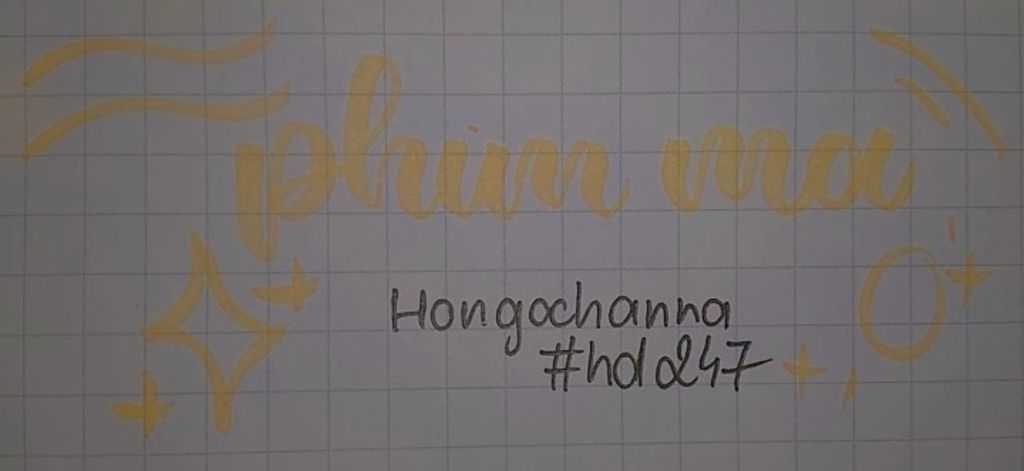 phim ma
Hongochanna
#hda247